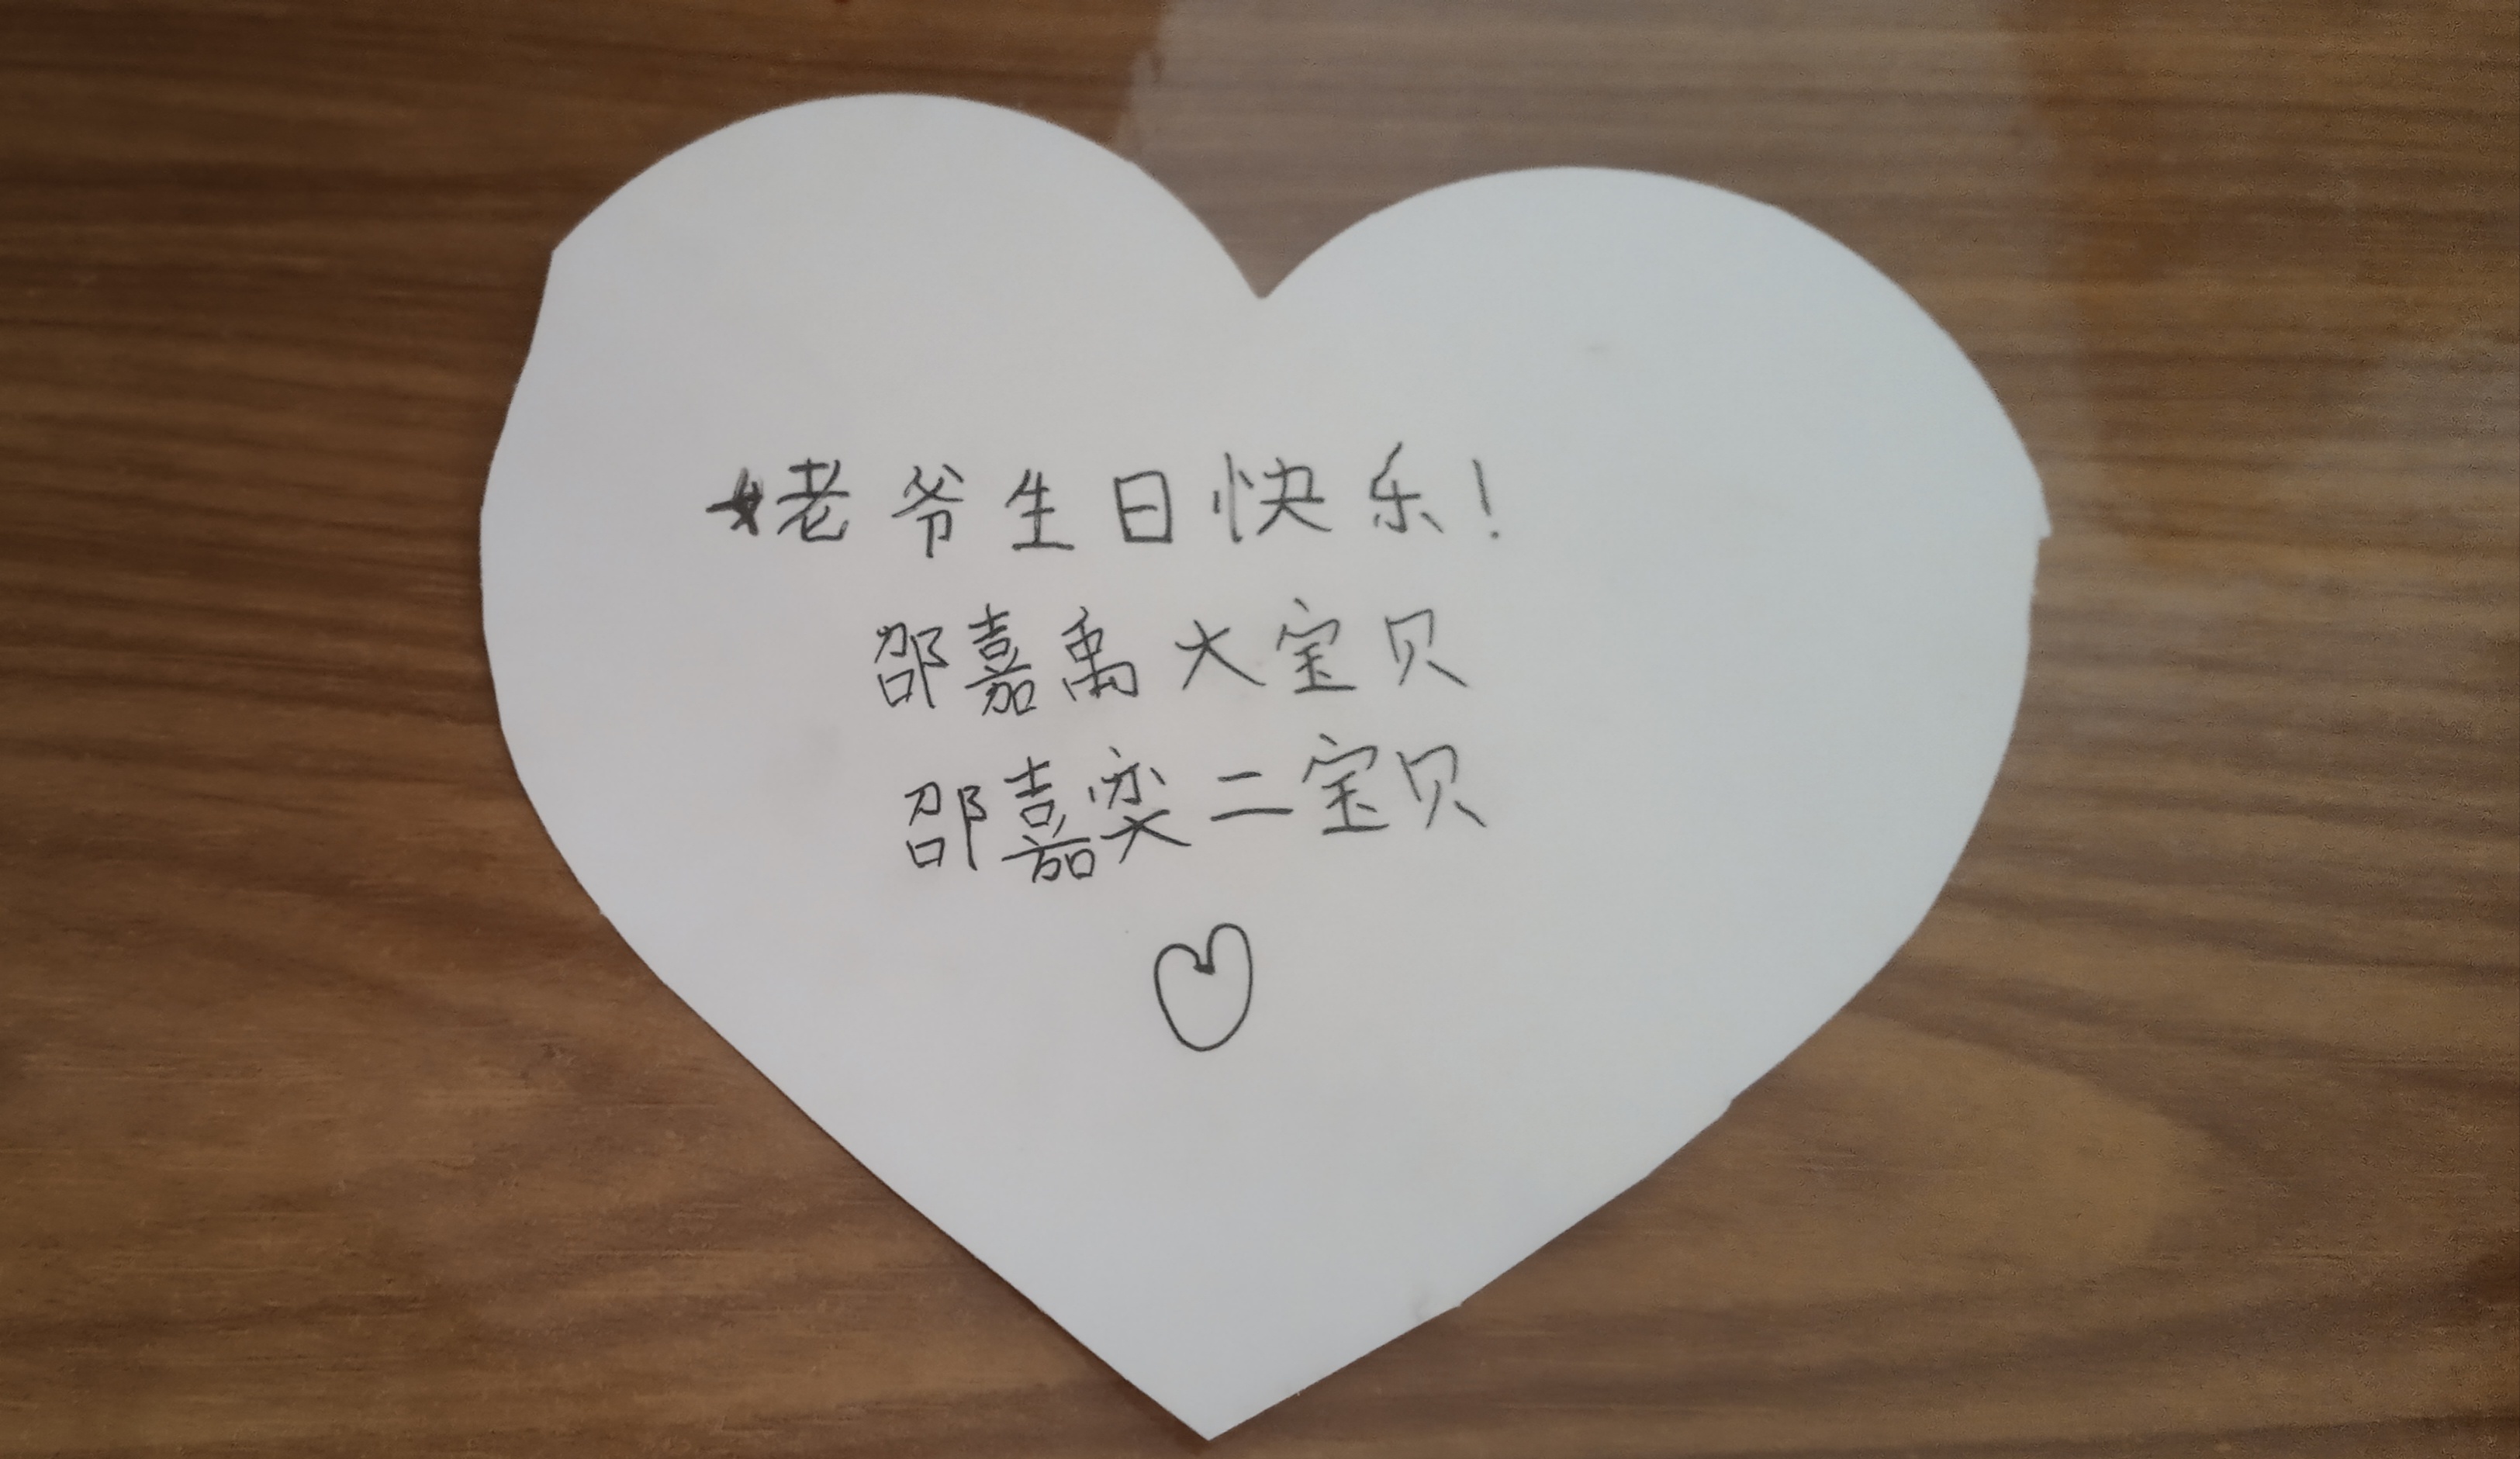 姥爷生日快乐!
邵嘉禹大宝贝
邵嘉奕二宝贝